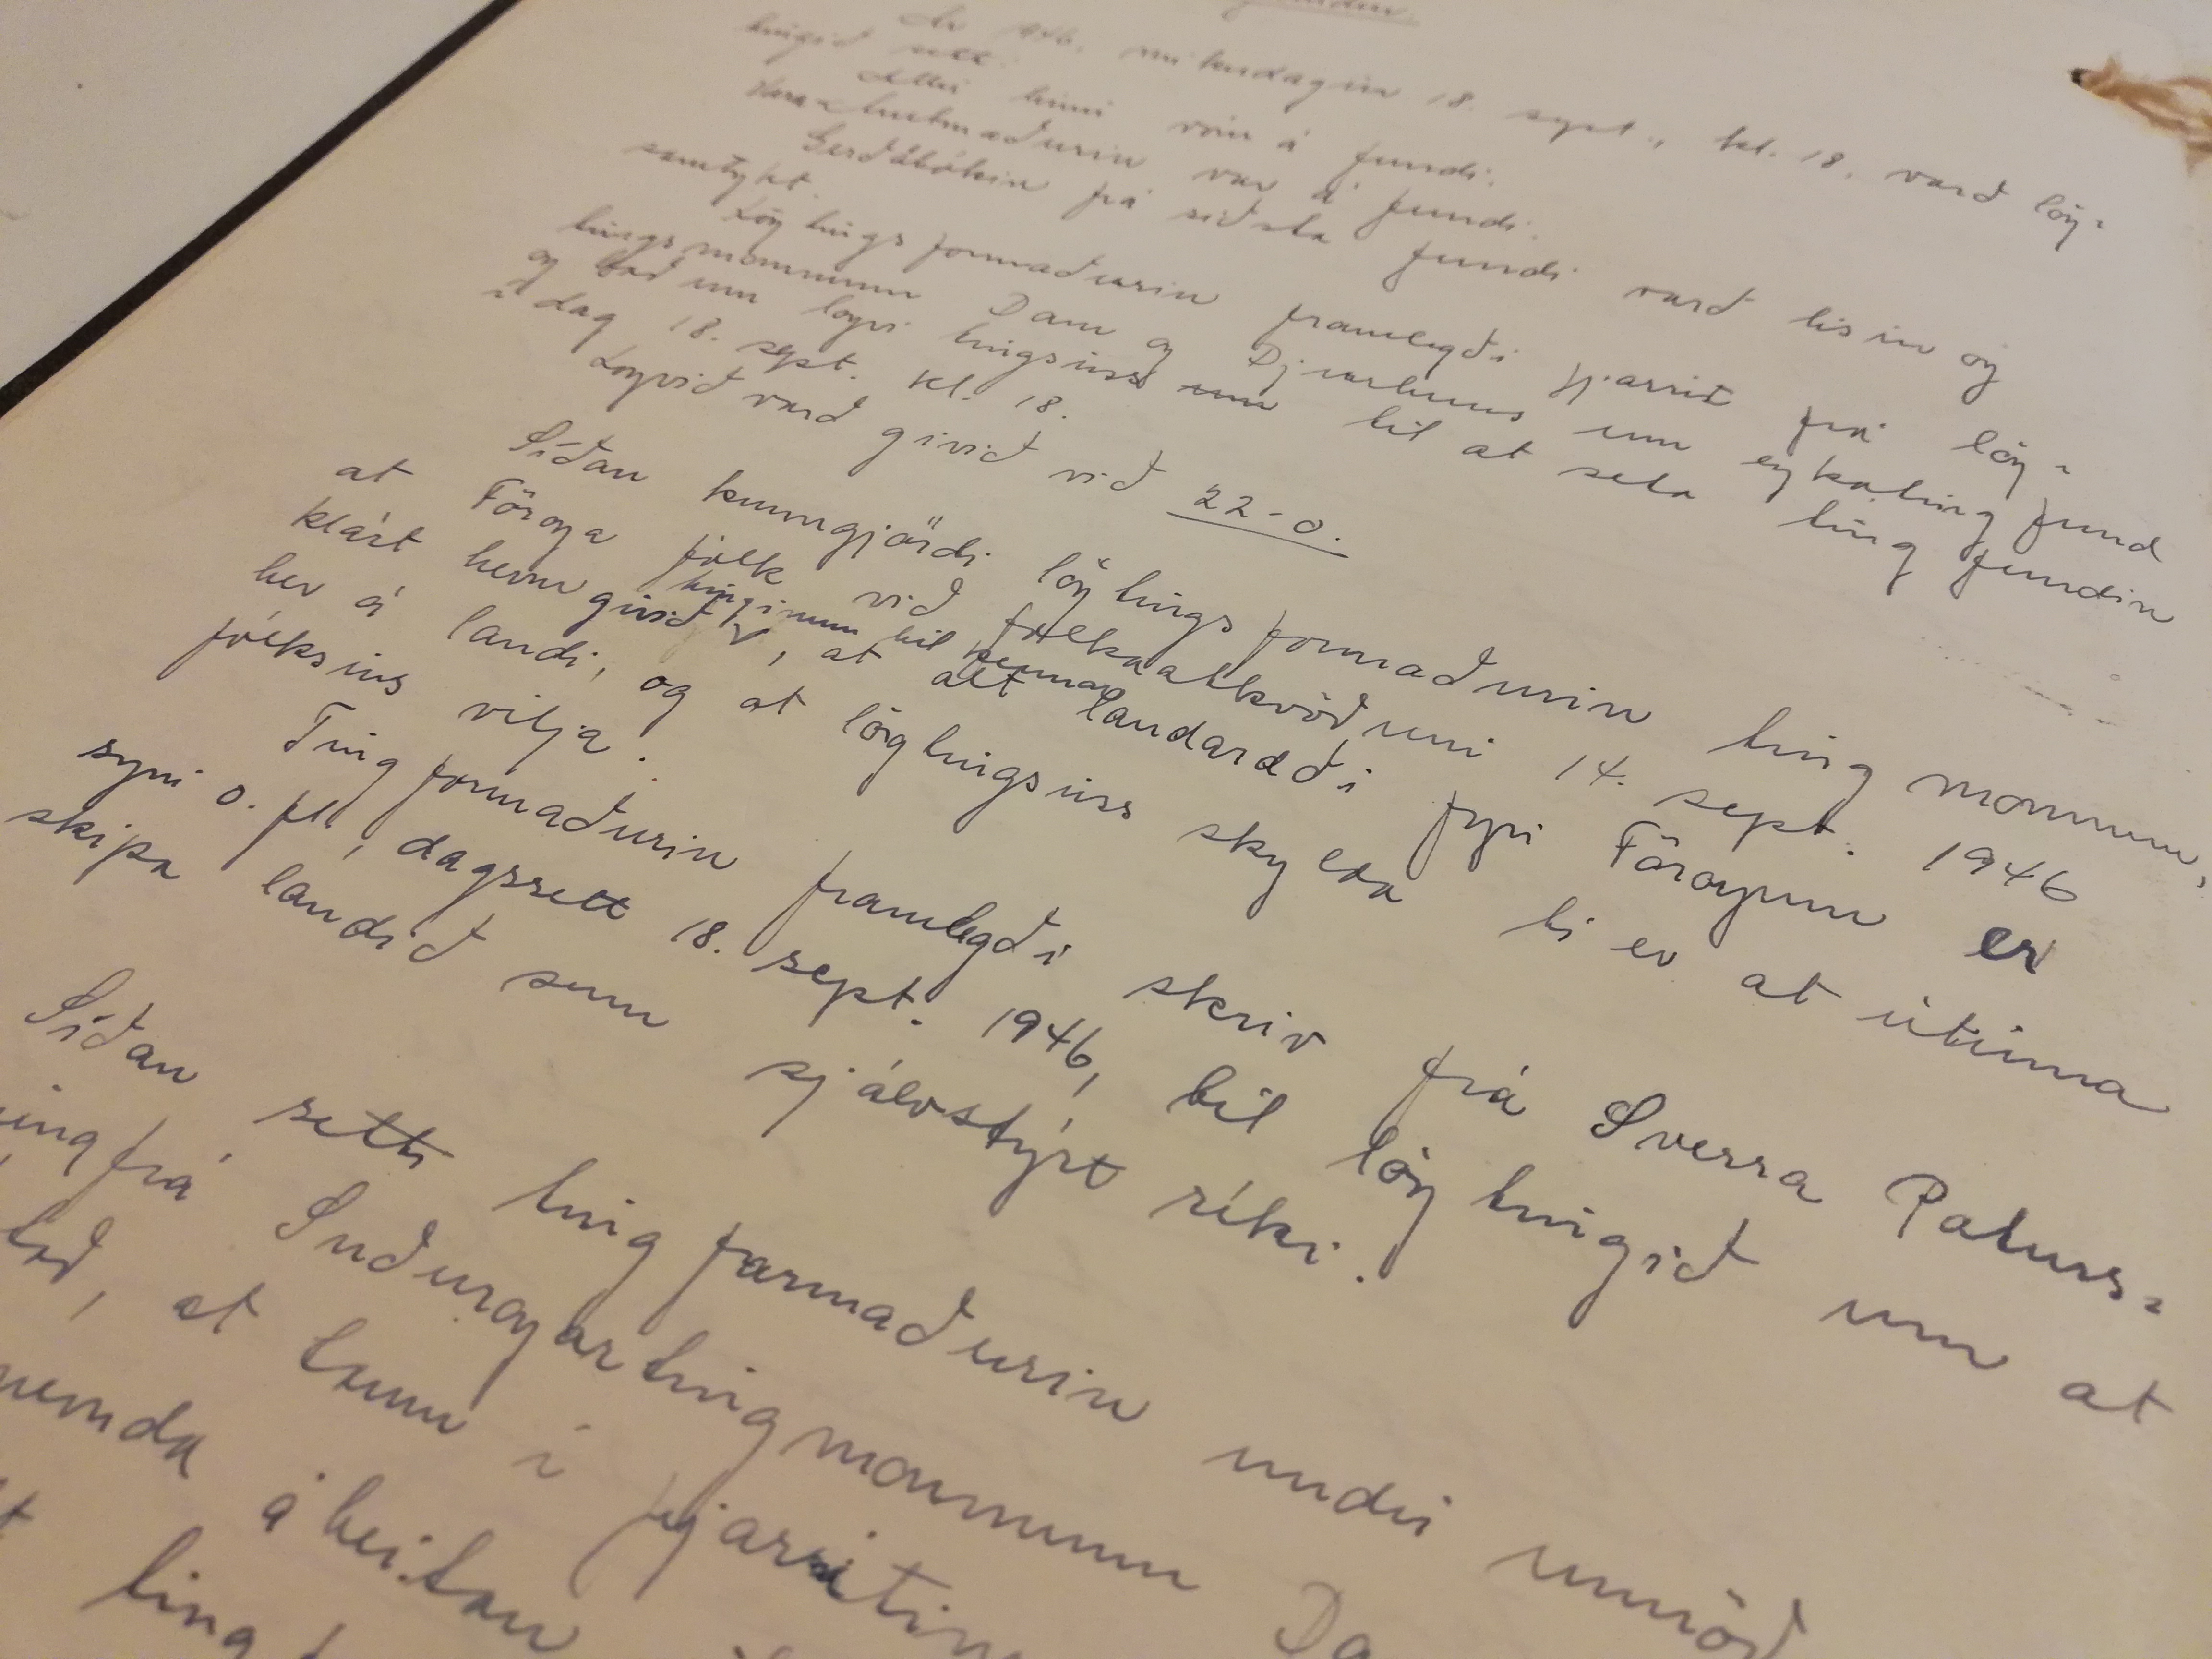 Ár 1946, mikudagin 18. sept., kl. 18. varð lög-
tingið sett.
Allir tinni vóru á fundi.
Varaamtmaðurin var á fundi.
Gerðabókin frá síðsta fundi varð lisin og
samtykt.
Lögtingsformaðurin framlegði fjarrit frá lög-
tingsmonnum Dam og Djurhuus um eykating fund
og bað um loyvi tingsins til at seta tingfundin
í dag 18. sept. kl. 18.
Loyvið varð givið við 22-0.
Síðan kunngjördi lögtingsformaðurin tingmonnum,
at Föroya fólk við fólkaatkvöðuni 14. sept. 1946
klárt hevur givið tinginum til kennar, at alt landaræði fyri Föroyum er
her á landi, og at lögtingsins skylda tí er at útinna
fólksins vilja.
Tingformaðurin framlegði skriv frá Sverra Paturs-
syni o. fl., dagssett 18. sept. 1946, til lögtingið um at
skipa landið sum sjálvstýrt ríki.
Síðan setti tingformaðurin undir umröð
frá Suðuroyartingmonnum Da
at teim í fjarritin
nevnda áheitan
ting